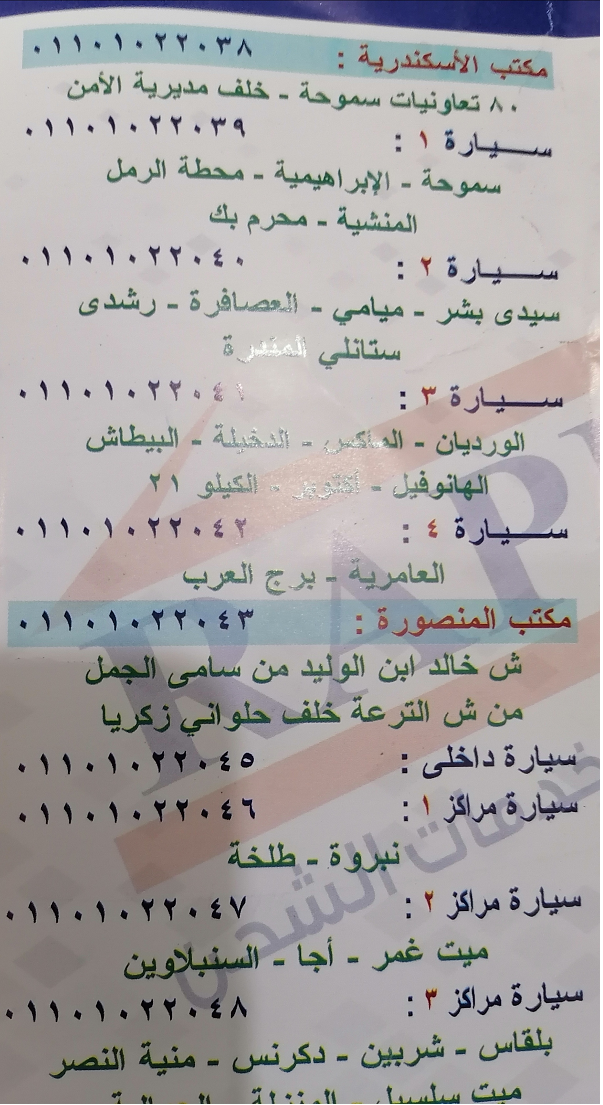 مكتب الأسكندرية : ٠١١٠١٠٢٢٠٣٨
٨٠ تعاونيات سموحة - خلف مديرية الأمن
ســـيـــارة ١ : ٠١١٠١٠٢٢٠٣٩
سموحة - الإبراهيمية - محطة الرمل
المنشية - محرم بك
ســـيـــارة ٢ : ٠١١٠١٠٢٢٠٤٠
سيدى بشر - ميامي - العصافرة - رشدى
ستانلي المندرة
ســـيـــارة ٣ : ٠١١٠١٠٢٢٠٤١
الورديان - الماكس - الدخيلة - البيطاش
الهانوفيل - أكتوبر - الكيلو ٢١
ســـيـــارة ٤ : ٠١١٠١٠٢٢٠٤٢
العامرية - برج العرب
مكتب المنصورة : ٠١١٠١٠٢٢٠٤٣
ش خالد ابن الوليد من سامى الجمل
من ش الترعة خلف حلواني زكريا
سيارة داخلى : ٠١١٠١٠٢٢٠٤٥
سيارة مراكز ١ : ٠١١٠١٠٢٢٠٤٦
نبروة - طلخة
سيارة مراكز ٢ : ٠١١٠١٠٢٢٠٤٧
ميت غمر - أجا - السنبلاوين
سيارة مراكز ٣ : ٠١١٠١٠٢٢٠٤٨
بلقاس - شربين - دكرنس - منية النصر
ميت سلسيل - المنزلة -
RAP
خدمات الشحن